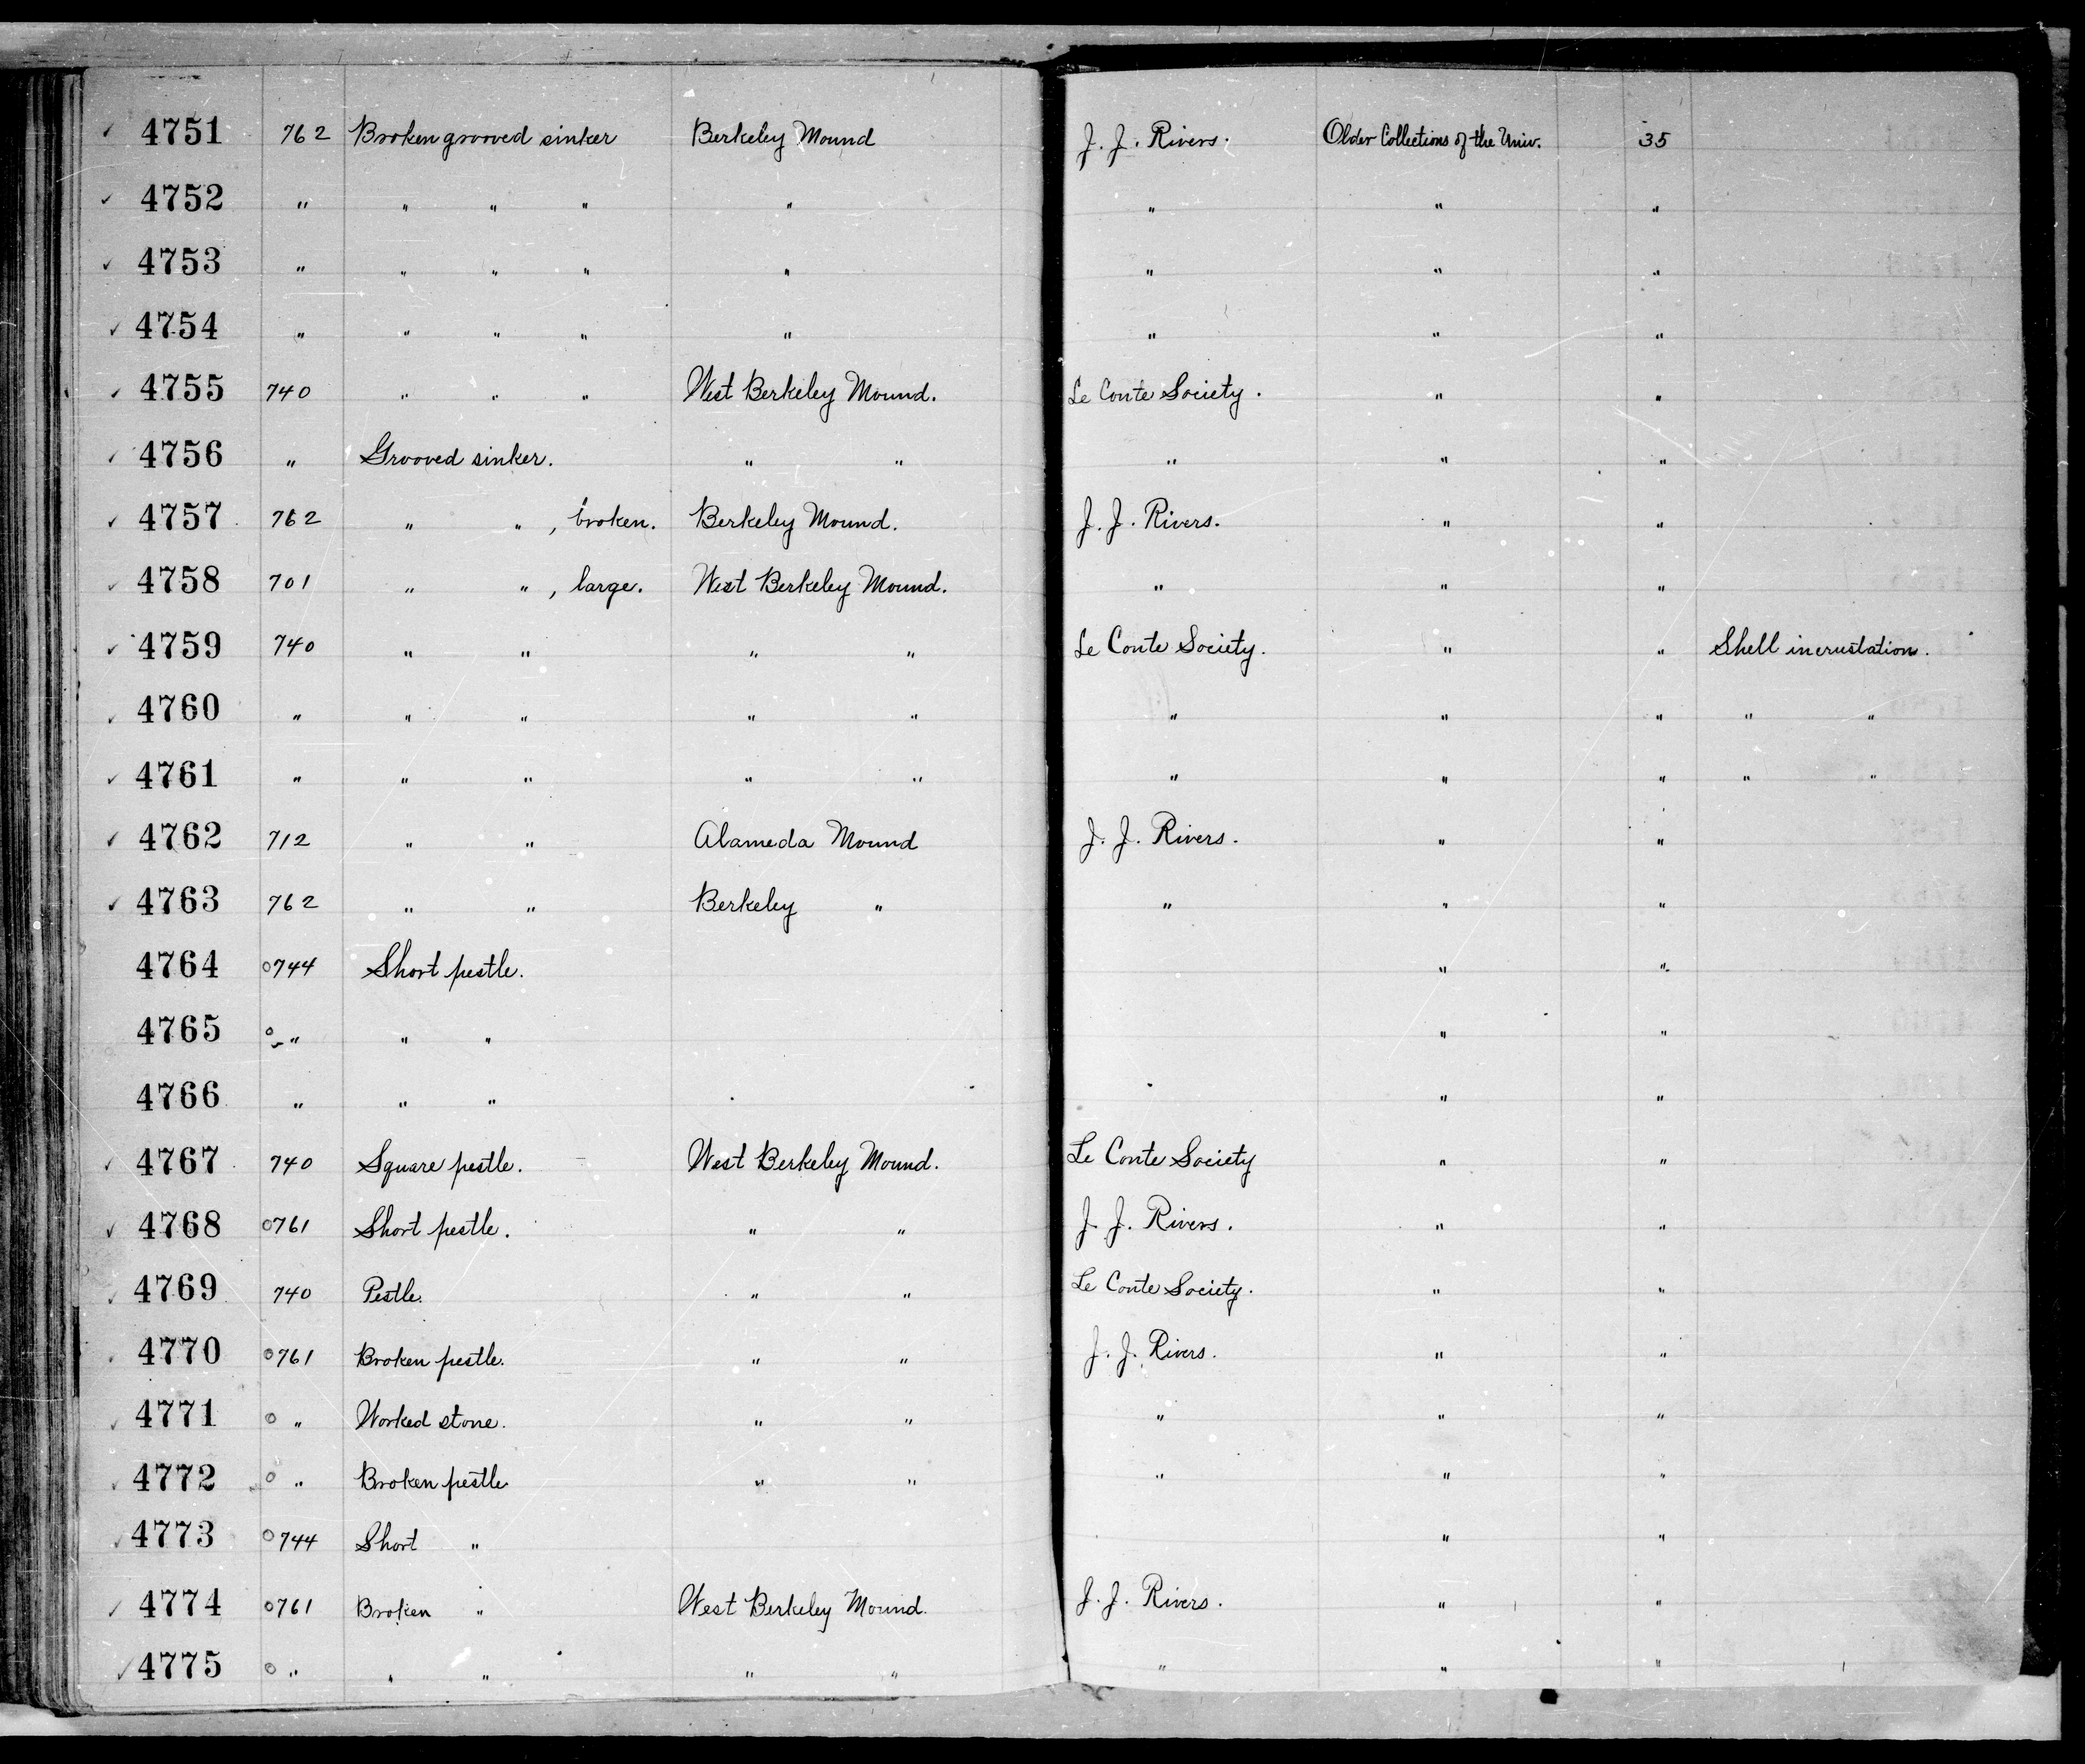 ✓ 4751 762 Broken grooved sinker Berkeley Mound J. J. Rivers. Older Collections of the Univ. 35
✓ 4752 " " " " " " " "
✓ 4753 " " " " " " " "
✓ 4754 " " " " " " " "
✓ 4755 740 " " " West Berkeley Mound. Le Conte Society. " "
✓ 4756 " Grooved sinker. " " " " "
✓ 4757 762 " " , broken. Berkeley Mound. J. J. Rivers. " "
✓ 4758 701 " " , large. West Berkeley Mound. " " "
✓ 4759 740 " " " " Le Conte Society. " " Shell incrustation.
✓ 4760 " " " " " " " " " "
✓ 4761 " " " " " " " " " "
✓ 4762 712 " " Alameda Mound J. J. Rivers. " "
✓ 4763 762 " " Berkeley " " " "
4764 0744 Short pestle. " "
4765 0 " " " " "
4766 " " " " "
✓ 4767 740 Square pestle. West Berkeley Mound. Le Conte Society " "
✓ 4768 0761 Short pestle. " " J. J. Rivers. " "
✓ 4769 740 Pestle. " " Le Conte Society. " "
✓ 4770 0761 Broken pestle. " " J. J. Rivers. " "
✓ 4771 0 " Worked stone. " " " " "
✓ 4772 0 " Broken pestle " " " " "
✓ 4773 0744 Short " " "
✓ 4774 0761 Broken " West Berkeley Mound. J. J. Rivers. " "
✓ 4775 0 " " " " " " " "